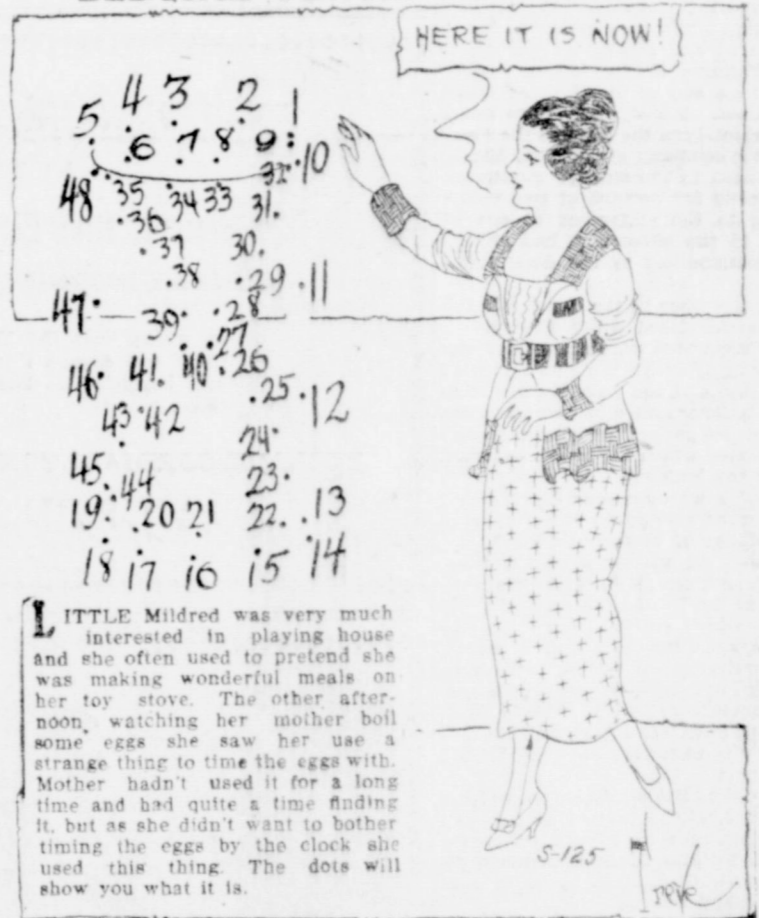 HERE IT IS NOW!
4 3 2 1
5
6 7 8 9
10
48 35 34 33 31
36
37 30
38 29 11
47 39 28
27
46 41 40 26
25 12
43 42
24
45 44 23
19 20 21 22 13
18 17 16 15 14
LITTLE Mildred was very much
interested in playing house
and she often used to pretend she
was making wonderful meals on
her toy stove. The other after-
noon, watching her mother boil
some eggs she saw her use a
strange thing to time the eggs with.
Mother hadn't used it for a long
time and had quite a time finding
it, but as she didn't want to bother
timing the eggs by the clock she
used this thing. The dots will
show you what it is.
S-125